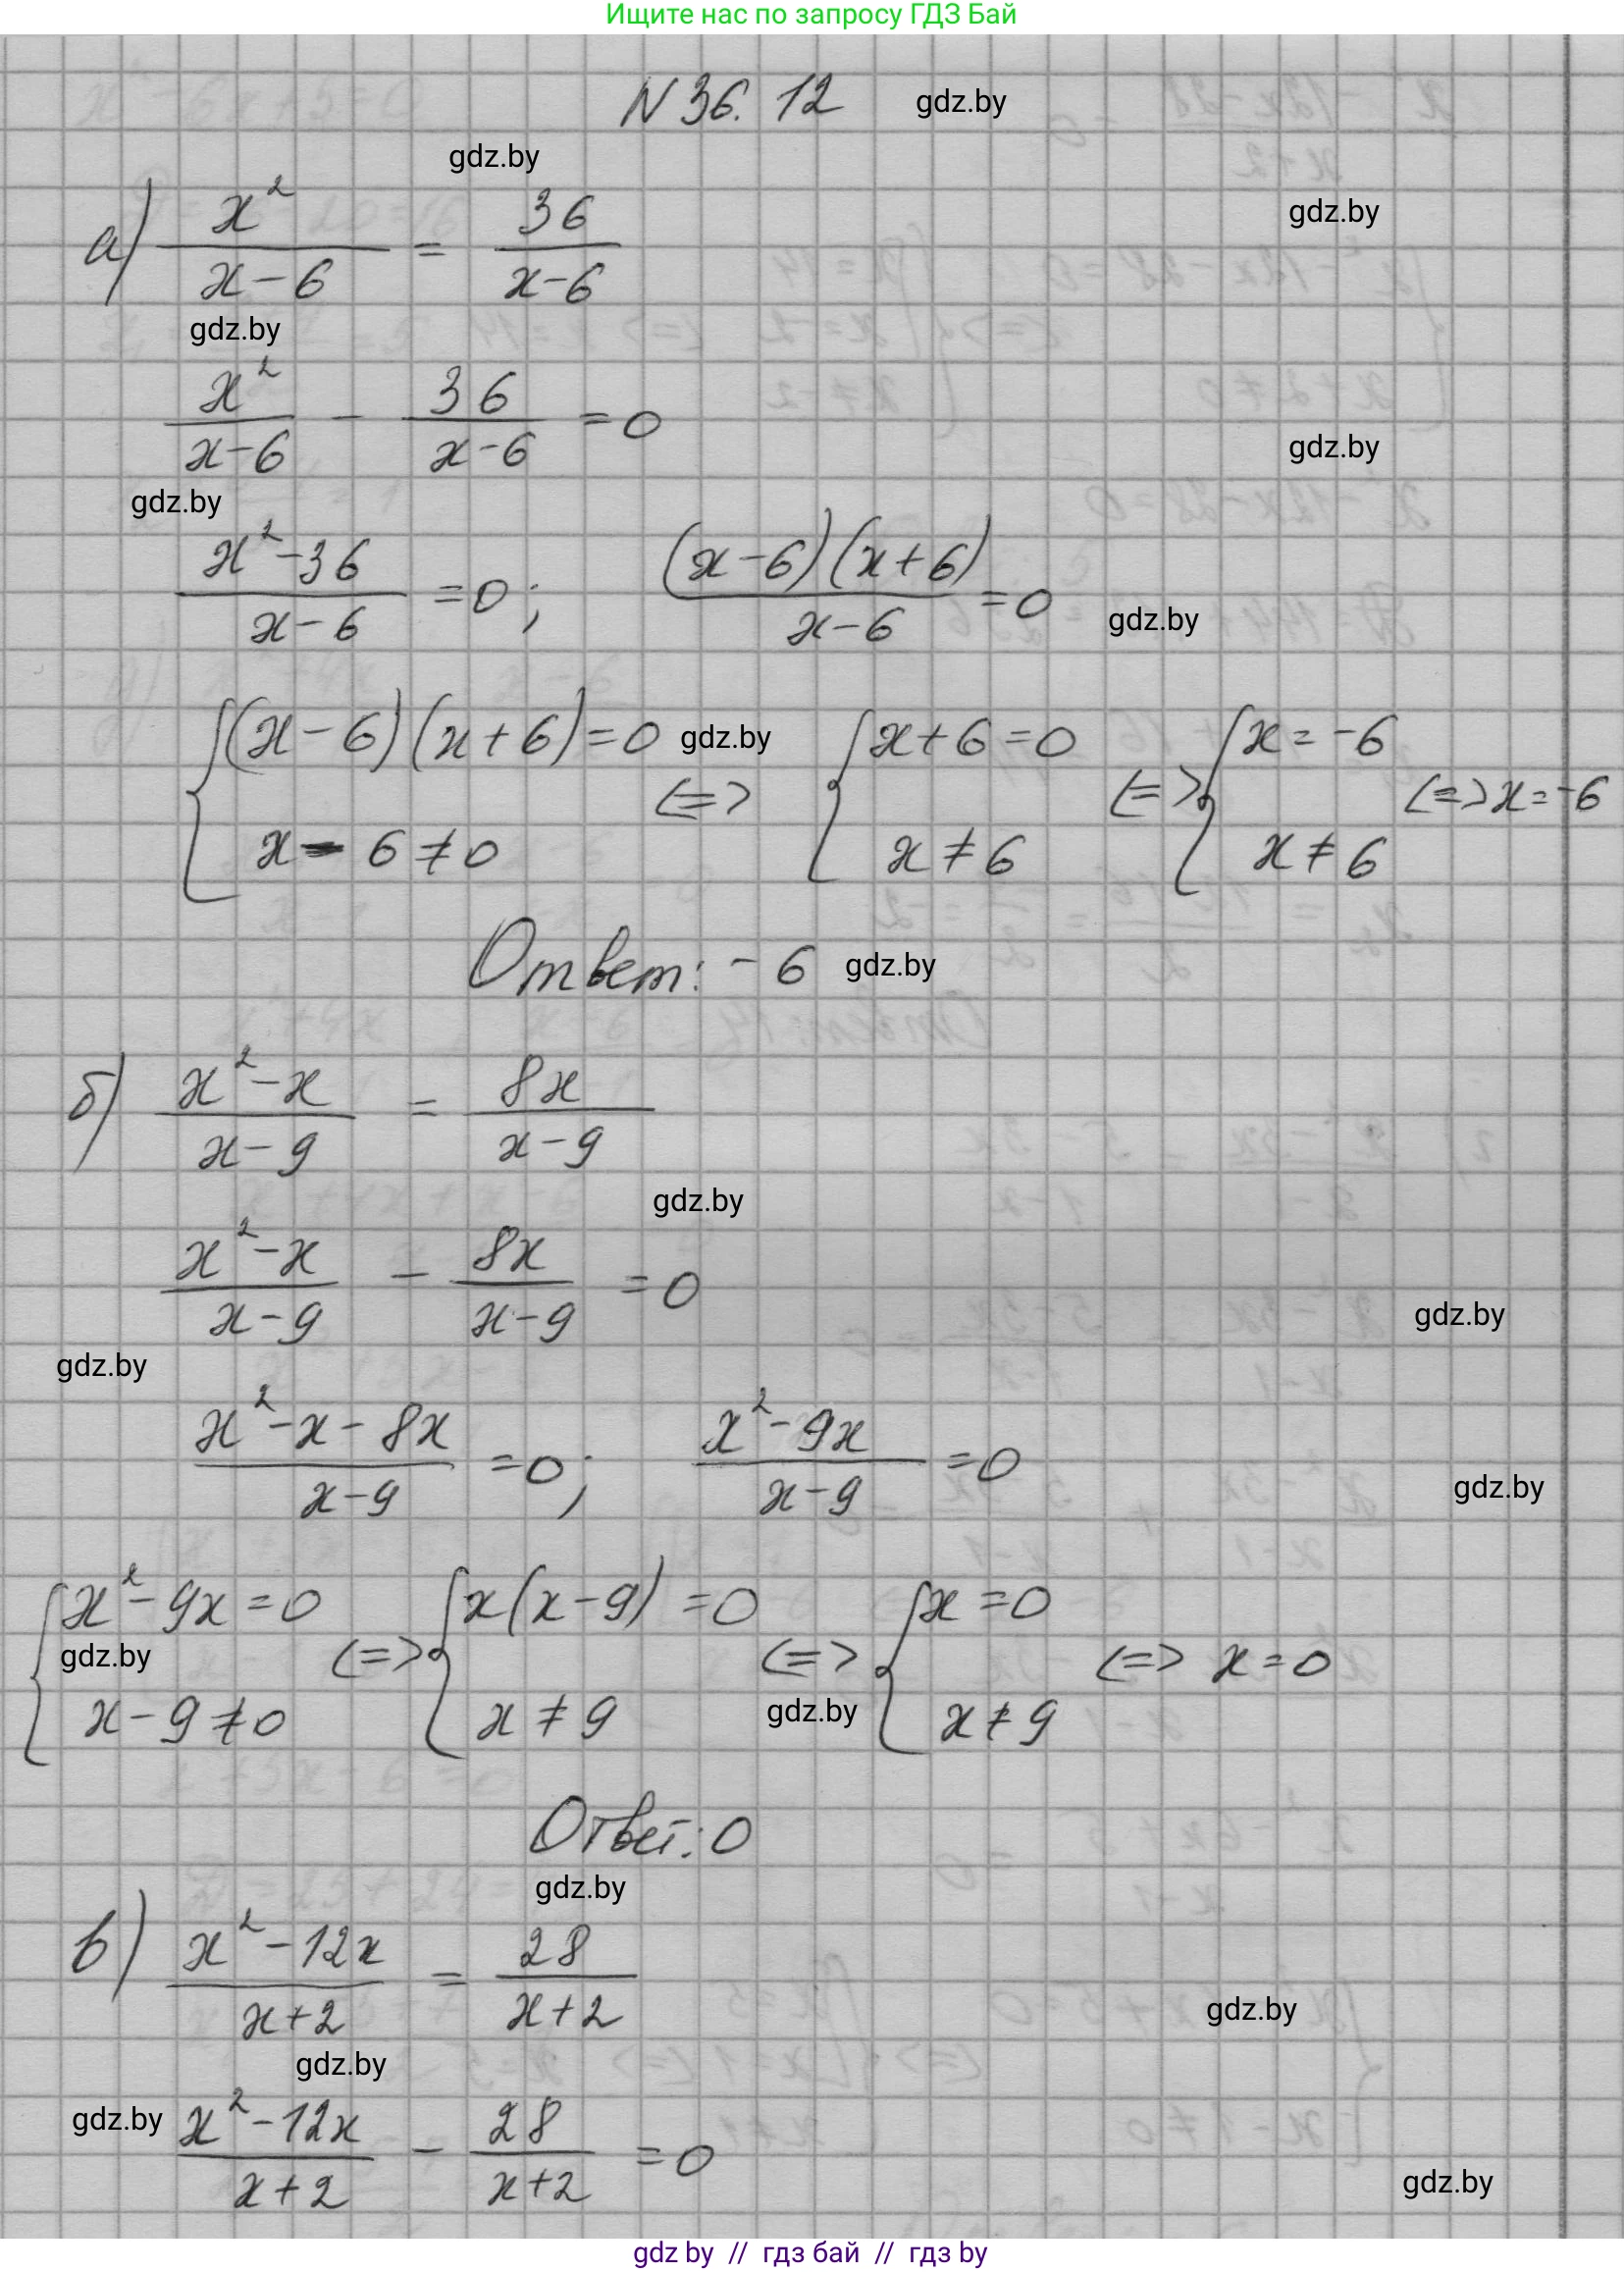 Ищите нас по запросу ГДЗ Бай
N 36. 12 gdz.by
gdz.by
gdz.by
а) x²/(x-6) = 36/(x-6)
gdz.by
x²/(x-6) - 36/(x-6) = 0
gdz.by
gdz.by
(x²-36)/(x-6) = 0; (x-6)(x+6)/(x-6) = 0
gdz.by
{(x-6)(x+6)=0 gdz.by {x+6=0 {x=-6
<=> <=> <=> x=-6
x-6≠0 x≠6 x≠6
Ответ: -6 gdz.by
б) (x²-x)/(x-9) = 8x/(x-9)
gdz.by
(x²-x)/(x-9) - 8x/(x-9) = 0
gdz.by
gdz.by
(x²-x-8x)/(x-9) = 0; (x²-9x)/(x-9) = 0
gdz.by
{x²-9x=0 {x(x-9)=0 {x=0
gdz.by <=> <=> <=> x=0
x-9≠0 x≠9 gdz.by x≠9
Ответ: 0
gdz.by
в) (x²-12x)/(x+2) = 28/(x+2)
gdz.by
gdz.by
gdz.by (x²-12x)/(x+2) - 28/(x+2) = 0
gdz.by
gdz by // гдз бай // гдз by